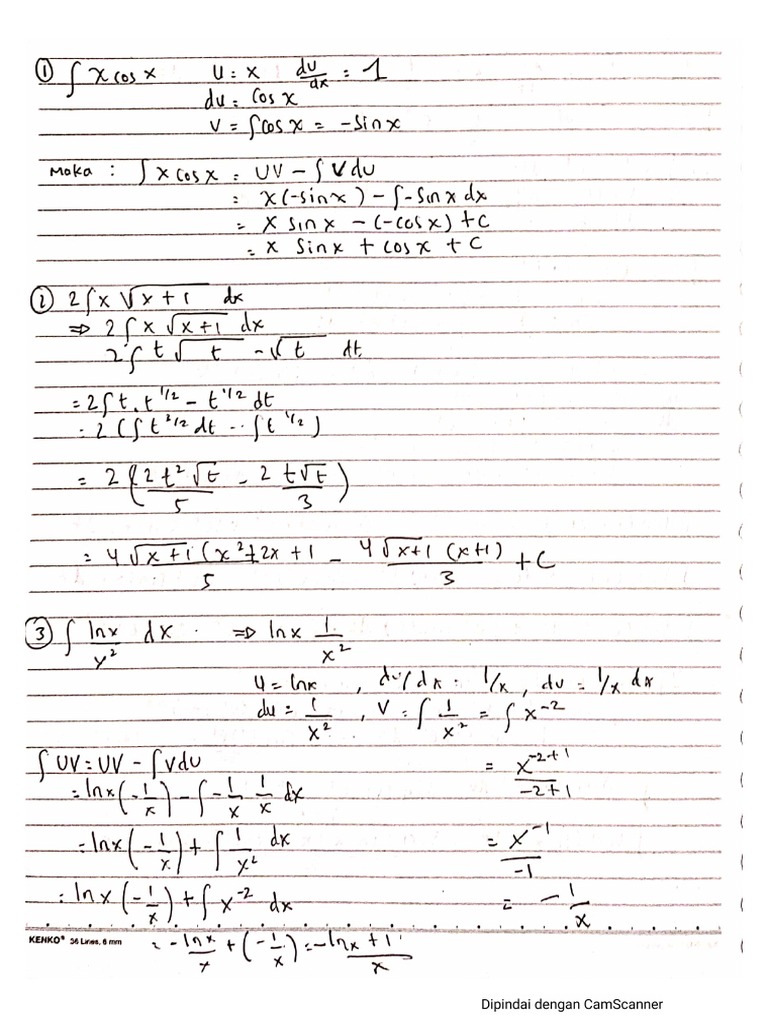 ① ∫ x cos x    U = x    du/dx = 1
du = cos x
V = ∫cos x = -sin x
Maka : ∫ x cos x = UV - ∫ V du
= x(-sin x) - ∫-sin x dx
= x sin x - (-cos x) + C
= x sin x + cos x + C
② 2∫x √(x+1) dx
⇒ 2∫x √(x+1) dx
2∫ t√t - √t dt
= 2∫t.t^1/2 - t^1/2 dt
= 2(∫t^3/2 dt - ∫t^1/2)
= 2(2t²√t/5 - 2 t√t/3)
= 4√(x+1) (x²+2x+1/5 - 4√(x+1) (x+1)/3 + C
③ ∫ ln x/x² dx . ⇒ ln x 1/x²
U = ln x , du/dx = 1/x , du = 1/x dx
du = 1/x² , V = ∫ 1/x² = ∫ x^-2
∫ UV = UV - ∫Vdu    = x^-2+1/-2+1
= ln x (-1/x) - ∫-1/x 1/x dx
= ln x (-1/x) + ∫ 1/x² dx    = x^-1/-1
= ln x (-1/x) + ∫ x^-2 dx    = -1/x
KENKO® 36 Lines, 6 mm
= -ln x/x + (-1/x) = -ln x + 1/x
Dipindai dengan CamScanner